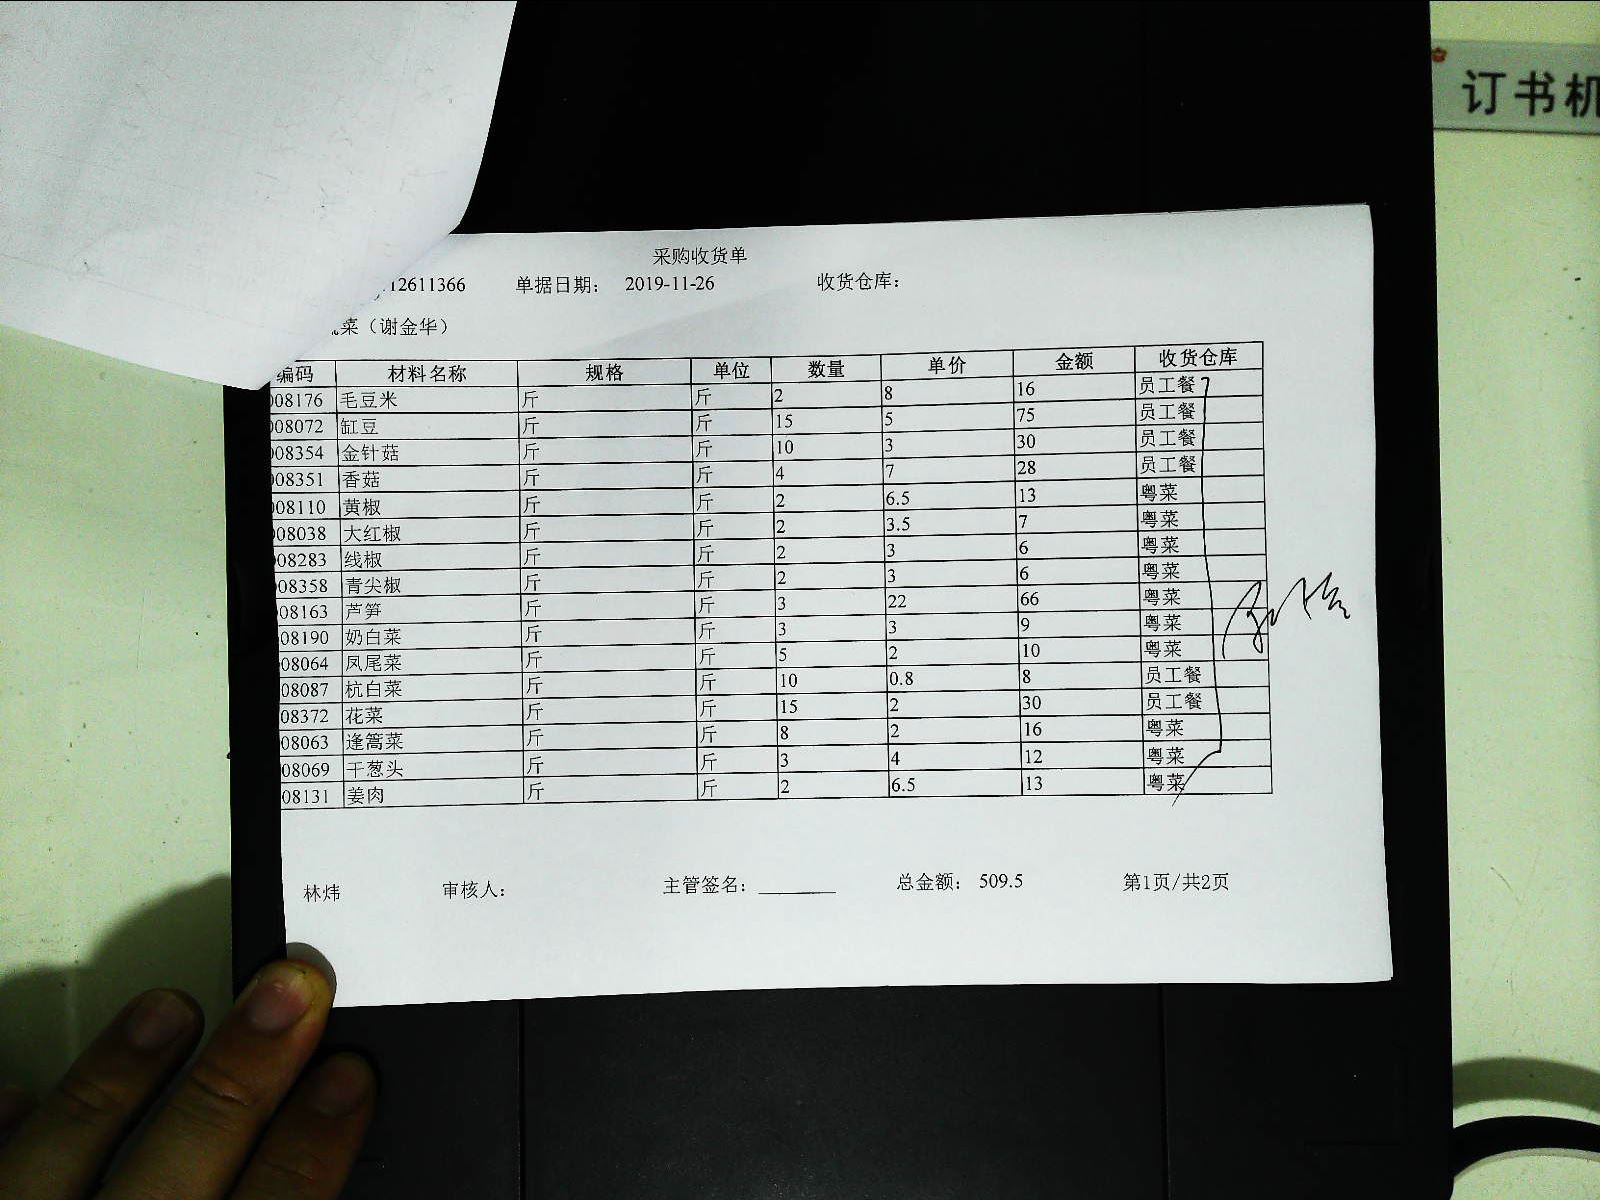 订书机
采购收货单
12611366 单据日期: 2019-11-26 收货仓库:
菜（谢金华）
编码 材料名称 规格 单位 数量 单价 金额 收货仓库
08176 毛豆米 斤 斤 2 8 16 员工餐
08072 缸豆 斤 斤 15 5 75 员工餐
08354 金针菇 斤 斤 10 3 30 员工餐
08351 香菇 斤 斤 4 7 28 员工餐
08110 黄椒 斤 斤 2 6.5 13 粤菜
08038 大红椒 斤 斤 2 3.5 7 粤菜
08283 线椒 斤 斤 2 3 6 粤菜
08358 青尖椒 斤 斤 2 3 6 粤菜
08163 芦笋 斤 斤 3 22 66 粤菜
08190 奶白菜 斤 斤 3 3 9 粤菜
08064 凤尾菜 斤 斤 5 2 10 粤菜
08087 杭白菜 斤 斤 10 0.8 8 员工餐
08372 花菜 斤 斤 15 2 30 员工餐
08063 逢篙菜 斤 斤 8 2 16 粤菜
08069 干葱头 斤 斤 3 4 12 粤菜
08131 姜肉 斤 斤 2 6.5 13 粤菜
林炜 审核人: 主管签名: 总金额: 509.5 第1页/共2页